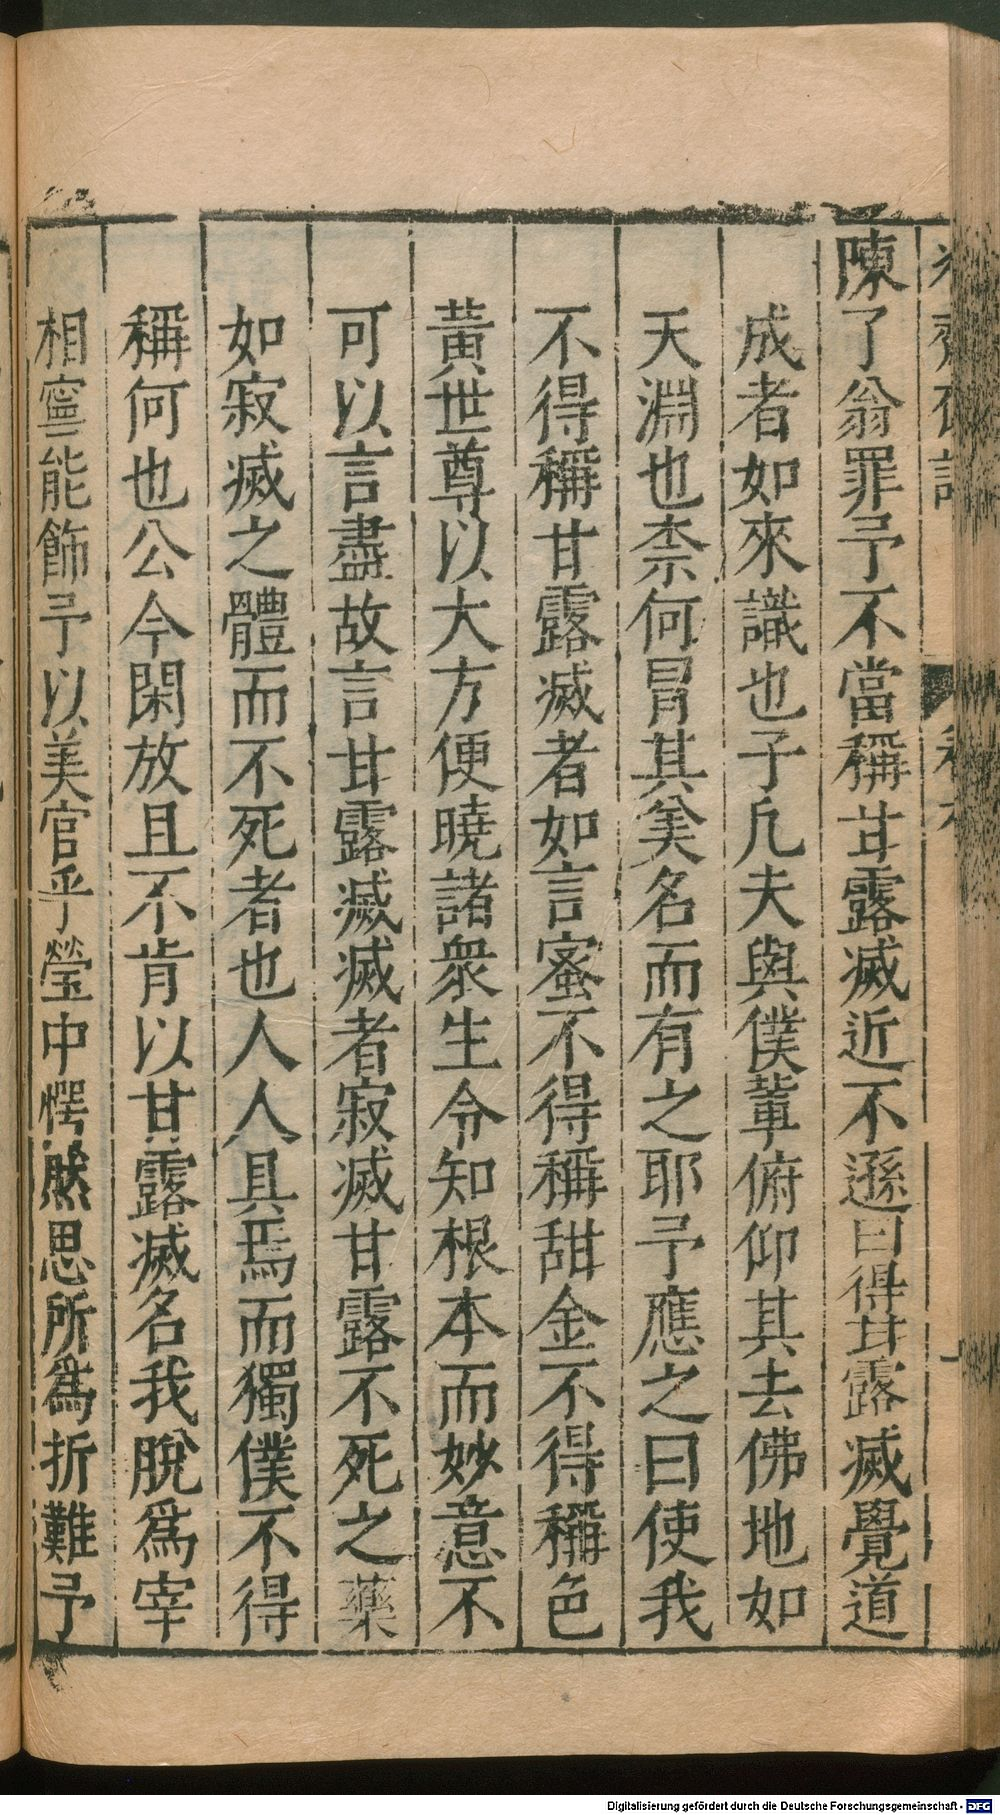 陳了翁罪予不當稱甘露滅近不遜曰得甘露滅覺道
成者如來識也子凡夫與僕輩俯仰其去佛地如
天淵也柰何冒其美名而有之耶予應之曰使我
不得稱甘露滅者如言蜜不得稱甜金不得稱色
黃世尊以大方便曉諸衆生令知根本而妙意不
可以言盡故言甘露滅滅者寂滅甘露不死之藥
如寂滅之體而不死者也人人具焉而獨僕不得
稱何也公今閑放且不肯以甘露滅名我脫爲宰
相寧能飾予以美官乎瑩中愕然思所爲折難予
Digitalisierung gefördert durch die Deutsche Forschungsgemeinschaft - DFG